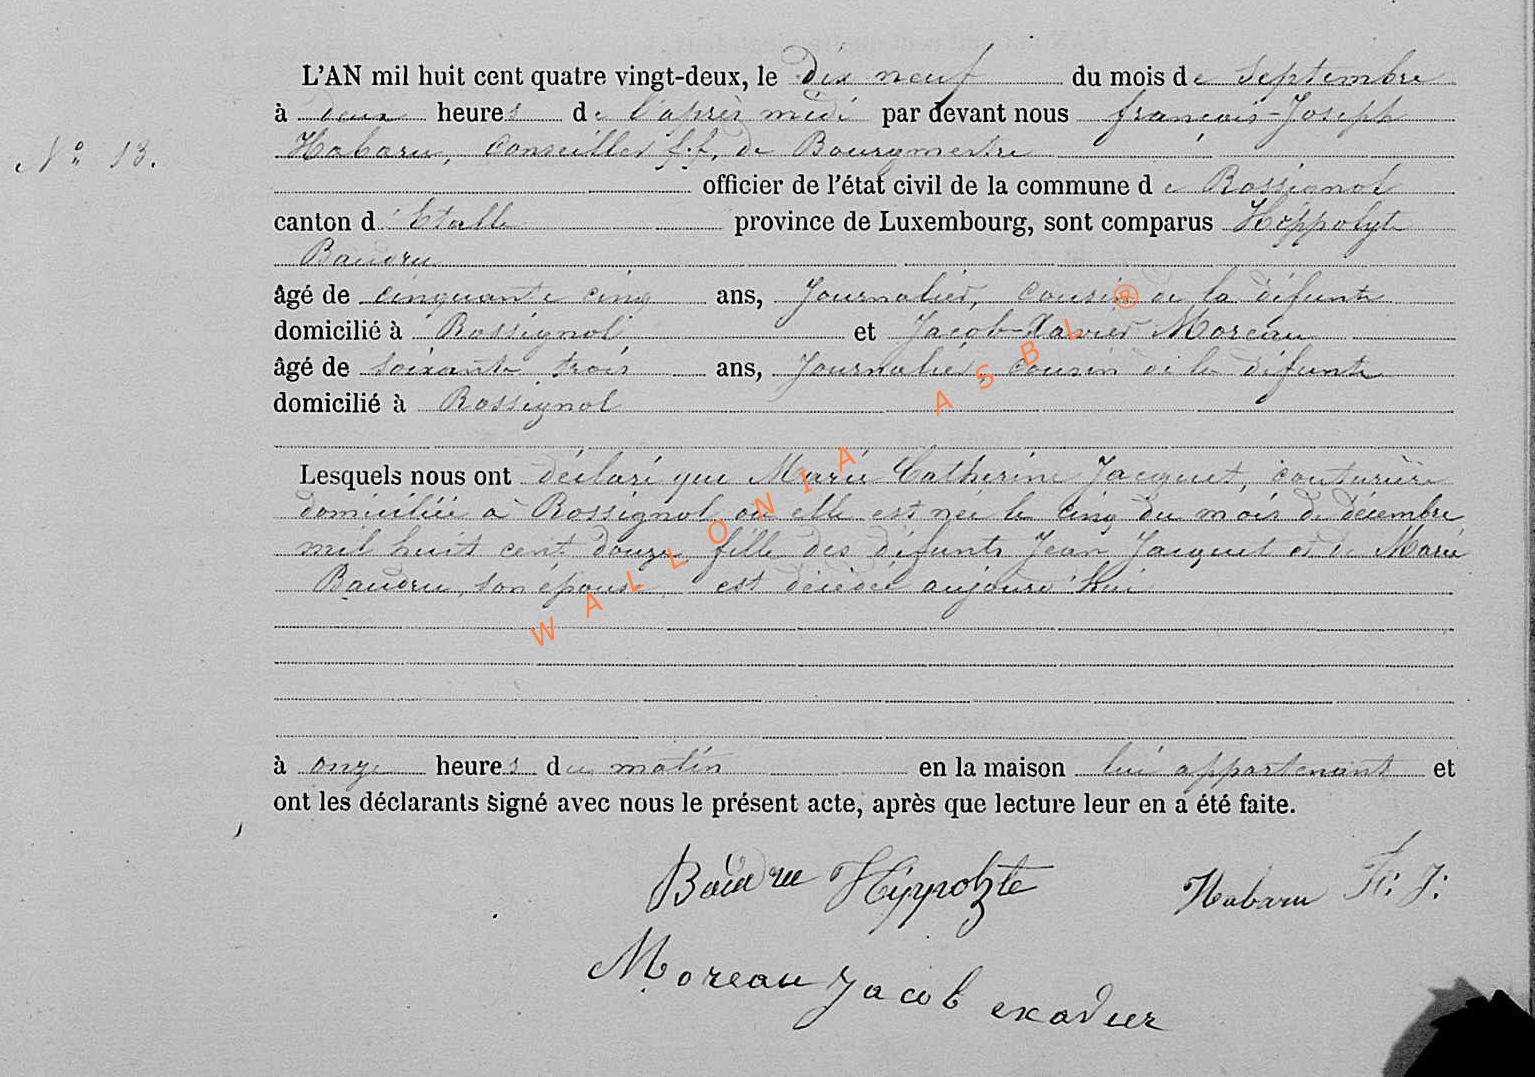 L'AN mil huit cent quatre vingt-deux, le dix neuf du mois de Septembre
à deux heures de l'après midi par devant nous françois-Joseph
N° 13.
Habaru, Conseiller f.f. de Bourgmestre
officier de l'état civil de la commune de Rossignol
canton d'Etalle province de Luxembourg, sont comparus Hippolyte
Baudru
âgé de cinquante cinq ans, Journalier, cousin de la défunte
domicilié à Rossignol et Jacob-Xavier Moreau
âgé de soixante trois ans, Journalier, cousin de la défunte
domicilié à Rossignol
Lesquels nous ont déclaré que Marie Catherine Jacquet, couturière
domiciliée à Rossignol où elle est née le cinq du mois de décembre
mil huit cent douze, fille des défunts Jean Jacquet et de Marie
Baudru, son épouse, est décédée aujourd'hui
à onze heures du matin en la maison lui appartenant et
ont les déclarants signé avec nous le présent acte, après que lecture leur en a été faite.
Baudru Hippolyte Habaru F: J:
Moreau Jacob exavier
WALLONIA ASBL ®